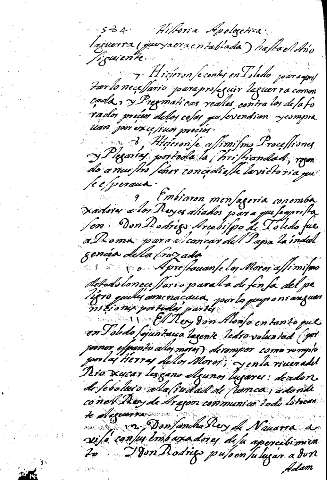 534. Historia Apologetica.
la guerra (que ya era entablada) hasta el año
siguiente.
7 Hicieronse cortes en Toledo para aprestar
lo necessario para proseguir la guerra comen
çada, y Pregmaticas reales contra los desafo
rados precios de las cosas que se vendian y compra
uan por excessiuos precios.
8 Hicieronse assimismo Processiones
y Plegarias por toda la Christiandad, rogan
do a nuestro señor concediesse la vittoria que
se esperaua.
9 Embiaron mensageria con emba
xadores a los Reyes aliados para que se aprestas
sen. Don Rodrigo Arcobispo de Toledo fue
a Roma para alcançar del Papa la indul
gencia de la Cruzada.
Aprestauanse los Moros assimismo
de todo lo necessario para la defensa del pe
ligro que les amenaçaua, por lo que ponian guar
niciones por todas partes.
El Rey Don Alonso en tanto que
en Toledo se juntaua la gente
por las tierras de los Moros; y en la riuera del
Rio Xucar les gano algunos lugares: de adon
de se boluio a la ciudad de Cuenca; a donde
con el Rey de Aragon communico todo lo tocan
te a la guerra.
Don Sancho Rey de Nauarra a
visò con sus embaxadores de su apercibimien
to. Don Rodrigo puso en su lugar a Don
Adam